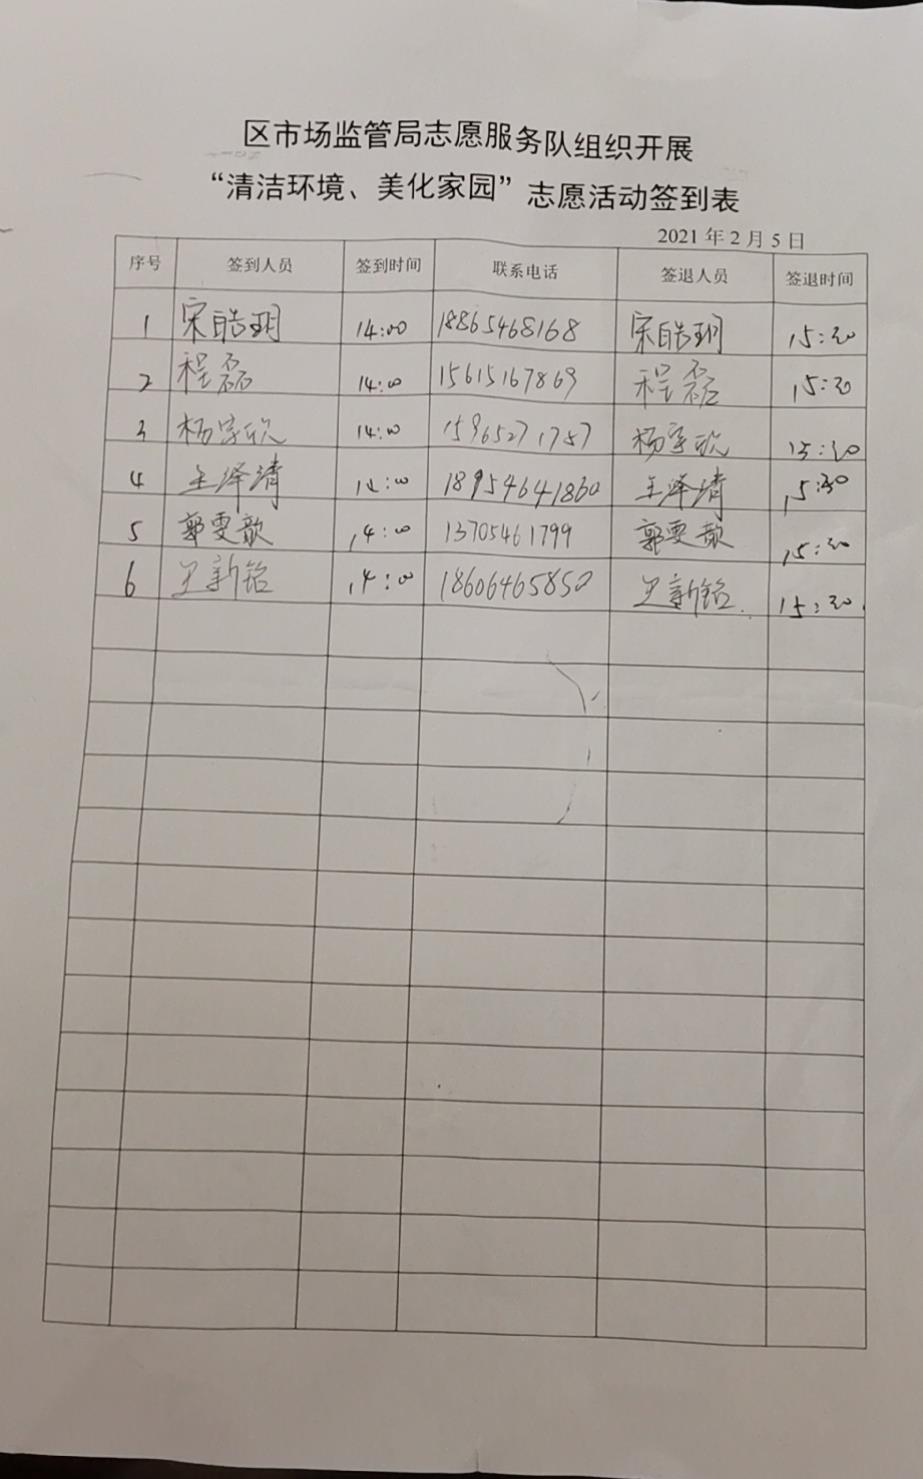 区市场监管局志愿服务队组织开展
“清洁环境、美化家园”志愿活动签到表
2021 年 2 月 5 日
序号 签到人员 签到时间 联系电话 签退人员 签退时间
1 宋皓玥 14:00 18865468168 宋皓玥 15:30
2 程磊 14:00 15615167869 程磊 15:30
3 杨宇欣 14:00 15965271757 杨宇欣 15:30
4 王泽清 14:00 18954641860 王泽清 15:30
5 郭雯歆 14:00 13705461799 郭雯歆 15:30
6 王新铭 14:00 18606465850 王新铭 15:30